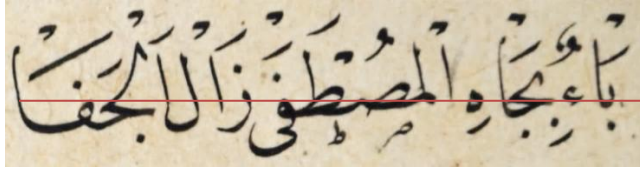 بَاءٌ بِجَاهِ الْمُصْطَفَى زَالَ الْجَفَا